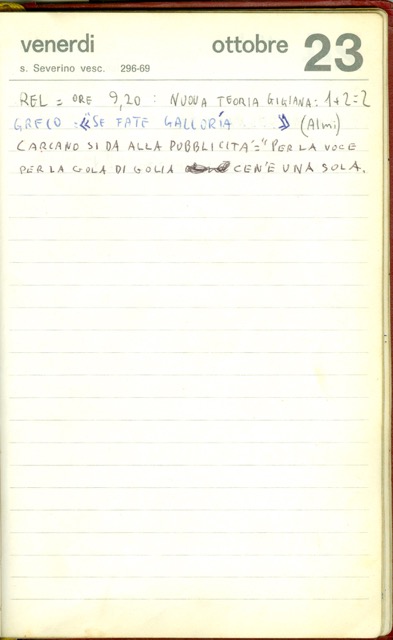 venerdi ottobre 23
s. Severino vesc. 296-69
REL = ORE 9,20 : NUOVA TEORIA GIGIANA: 1+2=2
GRECO = «SE FATE GALLORÍA » (Almi)
CARCANO SI DA ALLA PUBBLICITA'="PER LA VOCE
PER LA GOLA DI GOLIA CEN'È UNA SOLA.